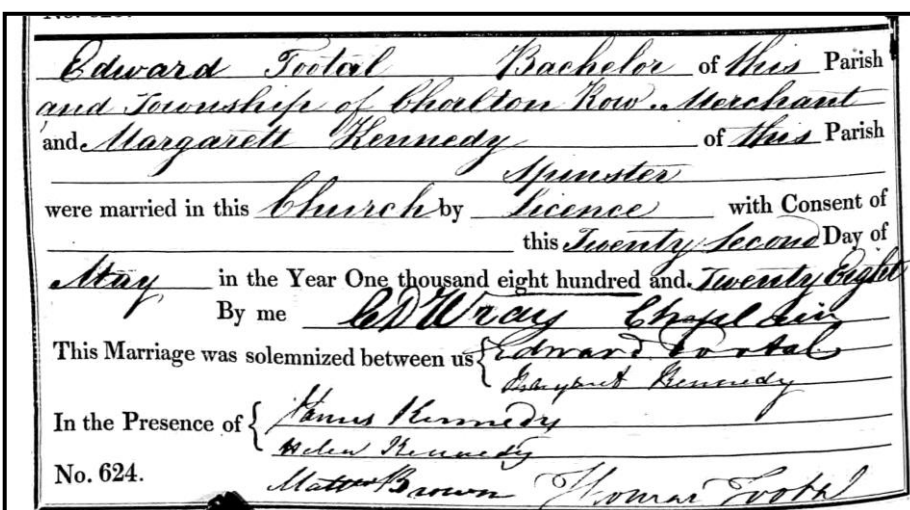 Edward Tootal Bachelor of this Parish
and Township of Chorlton Row. Merchant
and Margarett Kennedy of this Parish
Spinster
were married in this Church by Licence with Consent of
this Twenty Second Day of
May in the Year One thousand eight hundred and Twenty Eight
By me CD Wray Chaplain
This Marriage was solemnized between us { Edward Tootal
Margaret Kennedy
In the Presence of { James Kennedy
Helen Kennedy
No. 624. Mattw Brown Thomas Tootal